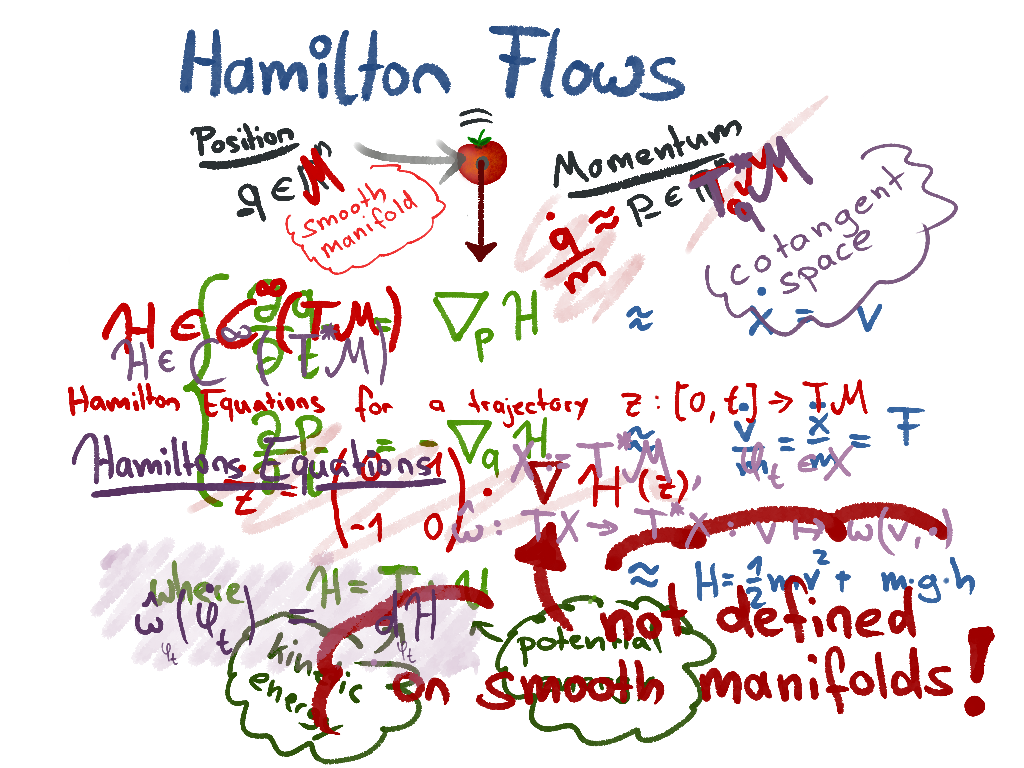 Hamilton Flows
Position
q ∈ M
smooth
manifold
Momentum
p ∈ T*_q M
q̇/m ≈
cotangent
space
H ∈ C^∞(TM)
= ∇_p H ≈ ẋ = v
H ∈ C^∞(T*M)
Hamilton Equations for a trajectory z : [0, t] → TM
= ∇_q H ≈ v̇/m = ẋ/m = F
Hamiltons Equations X := T*M, φ_t ∈ X
ż = (0 1 -1 0) · ∇ H(z),
ω̂ : TX → T*X : v ↦ ω(v, ·)
where H = T + U ≈ H = ½ m v² + m·g·h
ω̂_φt (φ̇_t) = d_φt H
kinetic
energy
potential
not defined
on smooth manifolds!